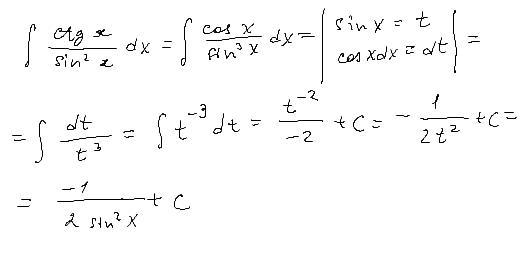 ∫ ctg x / sin² x dx = ∫ cos x / sin³ x dx = | sin x = t cos x dx = dt | =
= ∫ dt / t³ = ∫ t⁻³ dt = t⁻² / -2 + C = - 1 / 2t² + C =
= -1 / 2 sin² x + C